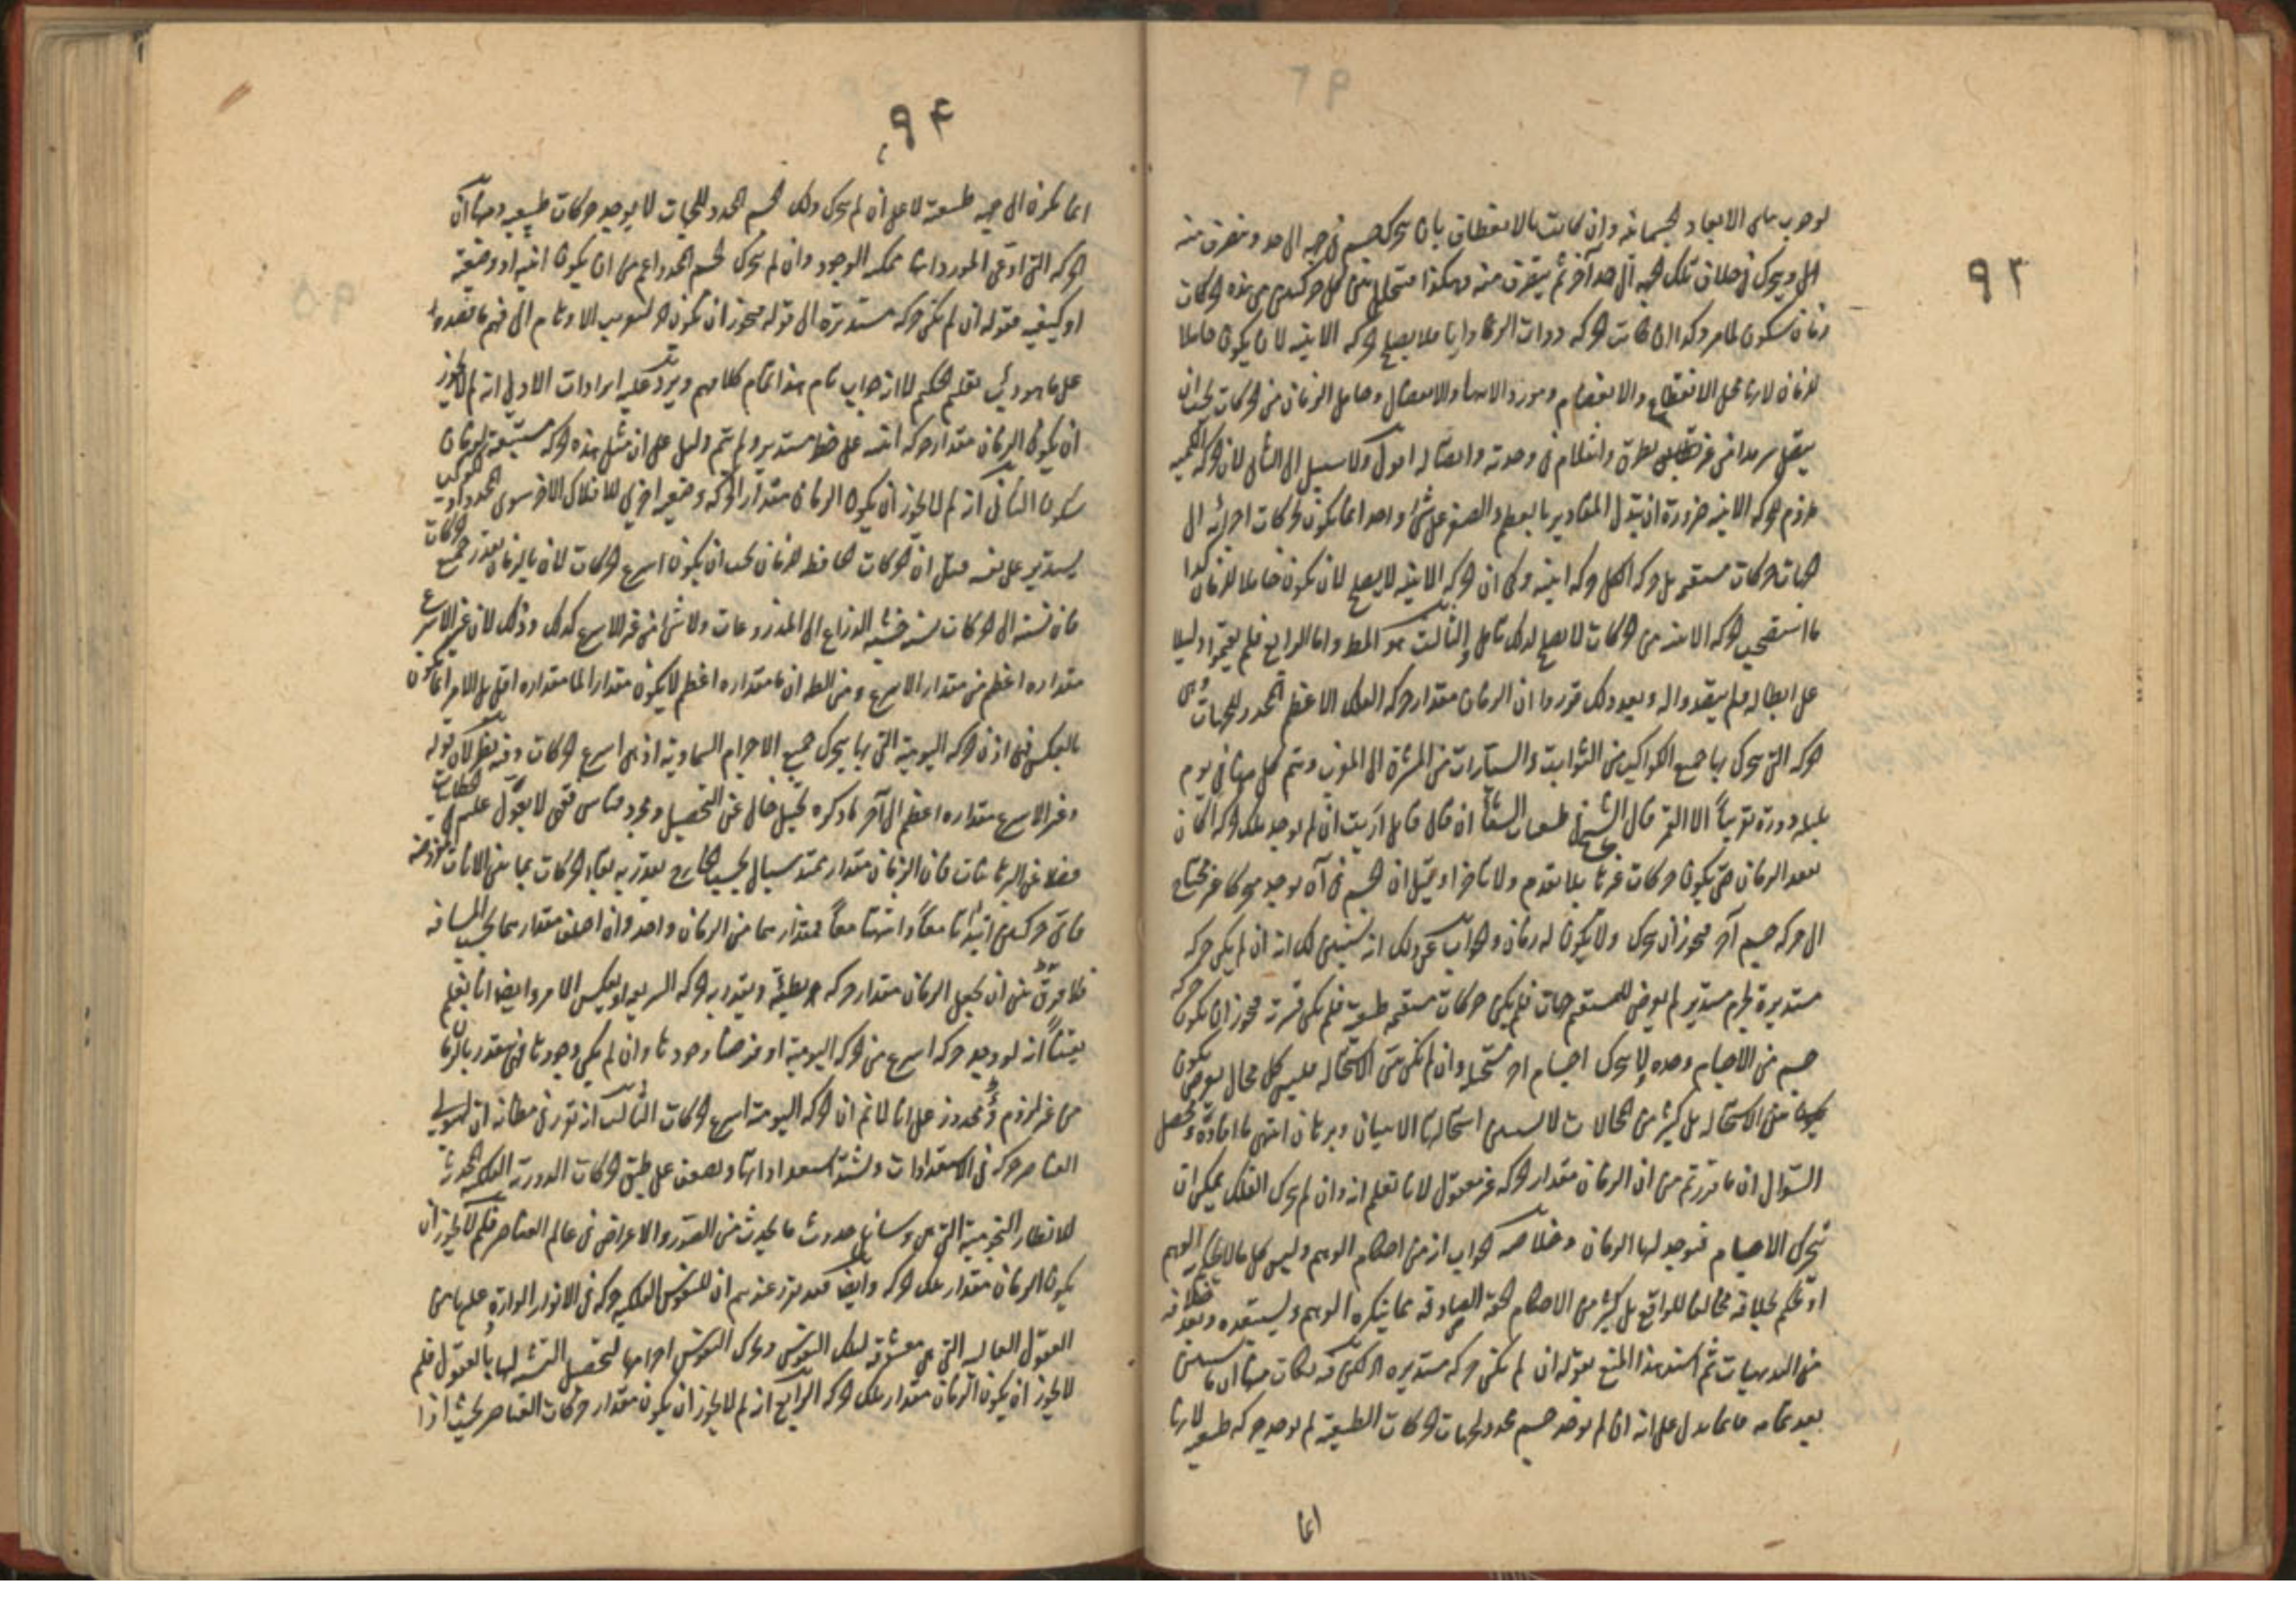 ٩٢
لوجوب تناهى الابعاد الجسمانية وان كانت بالانعطاف بان يتحرك جسم فى جهة الى حد و ينصرف منه
او يتحرك فى خلاف تلك الجهة الى حد آخر ثم ينصرف منه وهكذا فيتخلل بين كل حركتين من هذه الحركات
زمان سكون لما مر وكذا ان كانت الحركة ذوات الرجوع فلا يصلح الحركة الاينية لان يكون حاملا
للزمان لانها محل الانقطاع والانفصام ومورد الانتهاء والانفصال وحامل الزمان من الحركات يجب ان
يتصل سرمدا من غير تطرق وانثلام فى وحدته واتصاله اصلا ولا سبيل الى الثانى لان الحركة الكمية
يلزم الحركة الاينية ضرورة ان تبدل المقادير بالعظم والصغر على شئ واحد انما يكون بحركات اجزائه الى
الجهات حركات مستقيمة بل حركة الكل حركة اينية وكما ان الحركة الاينية لا يصلح لان يكون حاملا للزمان كذا
ما استصحب الحركة الاينية من الحركات لا يصلح لذلك تامل والثالث هو المط واما الرابع فلم يقيموا دليلا
على ابطاله فلم يتعدوا اليه وبعد ذلك قرروا ان الزمان مقدار حركة الفلك الاعظم المحدد للجهات وهى
الحركة التى يتحرك بها جميع الكواكب من الثوابت والسيارات من المشرق الى المغرب ويتم كل منها فى يوم
بليلة دورة تقريبا الا القمر قال الشيخ فى طبيعيات الشفا ان قال قائل ارايت ان لم يوجد تلك الحركة اكان
يفقد الزمان حتى يكون حركات غيرها بلا تقدم ولا تاخر او قيل ان الجسم فى آن يوجد متحركا غير محتاج
الى حركة جسم آخر فيجوز ان يتحرك ولا يكون له زمان والجواب عن ذلك انه سنبين لك انه ان لم يكن حركة
مستديرة لجرم مستدير لم يعرض للمستقيم جهات فلم يكن حركات مستقيمة طبيعية فلم يكن قسرية فيجوز ان يكون حركة
جسم من الاجسام وحده لا يتحرك اجسام اخر مستحيلا وان لم يكن بين الاستحالة فليس كل محال يعرض يكون
بين الاستحالة بل كثير من المحالات لا يتبين استحالتها الا ببيان وبرهان انتهى ما افاده ومحصل
السؤال ان ما قررتم من ان الزمان مقدار الحركة غير معقول لانا نعلم انه وان لم يتحرك الفلك يمكن ان
يتحرك الاجسام فيوجد لها الزمان وخلاصة الجواب انه من احكام الوهم وليس كل ما لا ينكره الوهم
او يحكم بخلافه مخالفا للواقع بل كثير من الاحكام الحقة الصادقة مما ينكره الوهم ويستبعده ويعد خلافه
من البديهيات ثم استند هذا المنع بقوله ان لم يكن حركة مستديرة الى لكن فيه نكات منها ان ما سيبين
بعد تمامه فانما يدل على انه ان لم يوجد جسم محدد لجهات الحركات الطبيعية لم يوجد حركة طبيعية لانها
انما
٩٤
انما يكون الى جهة طبيعية لا على انه لم يتحرك ذلك الجسم المحدد للجهات لا يوجد حركات طبيعية ومنها ان
الحركة التى ادعى المورد انها ممكنة الوجود وان لم يتحرك الجسم المحدد اعم من ان يكون اينية او وضعية
او كيفية فقوله ان لم يكن حركة مستديرة الى قوله فيجوز ان يكون الاوهام الى فهم ما قصده
على ما هو دأب تعليم الحكم لا انه جواب تام هذا تمام كلامهم ويرد عليه ايرادات الاول انه لم لا يجوز
ان يكون الزمان مقدار حركة اينية على خط مستدير ولم يتم دليل على ان مثل هذه الحركة مسبوقة لزمان
سكون الثانى انه لم لا يجوز ان يكون الزمان مقدار الحركة وضعية اخرى للافلاك الاخر سوى المحدد او لكوكب
يستدير على نفسه قيل ان الحركات الحافظة للزمان يجب ان يكون اسرع الحركات لان بالزمان يقدر جميع الحركات
فان نسبته الى الحركات نسبة خشبة الذراع الى المذروعات ولا شئ من غير الاسرع كذلك وذلك لان غير الاسرع
مقداره اعظم من مقدار الاسرع ومن الظ ان ما مقداره اعظم لا يكون مقدار الما مقداره اقل بل الامر انما يكون
بالعكس فهى اذن الحركة اليومية التى بها يتحرك جميع الاجرام السماوية اذ هى اسرع الحركات وفيه نظر لان قوله
وغير الاسرع مقداره اعظم الى آخر ما ذكره تخييل خال عن التحصيل ومجرد قياس فقهى لا يعول عليه فى الخطابيات
فضلا عن البرهانيات فان الزمان مقدار ممتد سيال بحسب الخارج يقدر به بقاء الحركات بما بين الانات المفروضة
فاى حركتين ابتدأتا معا وانتهتا معا فمقدارهما من الزمان واحد وان اختلف مقدارهما بحسب المسافة
فلا فرق بين ان يجعل الزمان مقدار حركة بطيئة ويتقدر به الحركة السريعة او بعكس الامر وايضا انا نعلم
يقينا انه لو وجد حركة اسرع من الحركة اليومية او فرضنا وجودها وان لم يكن وجودها فهى يتقدر بالزمان
من غير لزوم محذور على انا لا نم ان الحركة اليومية اسرع الحركات الثالث انه تقرر فى مظانه ان لهيولى
العناصر حركة فى الاستعدادات وشدة استعداداتها وضعف على طبق حركات الدورية الفلكية المحدثة
للانظار النجومية التى هى وسائط حدوث ما يحدث من الصور والاعراض فى عالم العناصر فلم لا يجوز ان
يكون الزمان مقدار تلك الحركة وايضا قد تقرر عندهم ان للنفوس الفلكية حركة فى الانوار الواردة عليها من
العقول العالية التى هى معشوقة لتلك النفوس وتحرك النفوس اجرامها لتحصل التشبه لها بالعقول فلم
لا يجوز ان يكون الزمان مقدار تلك الحركة الرابع انه لم لا يجوز ان يكون مقدار حركات العناصر بحيث اذا